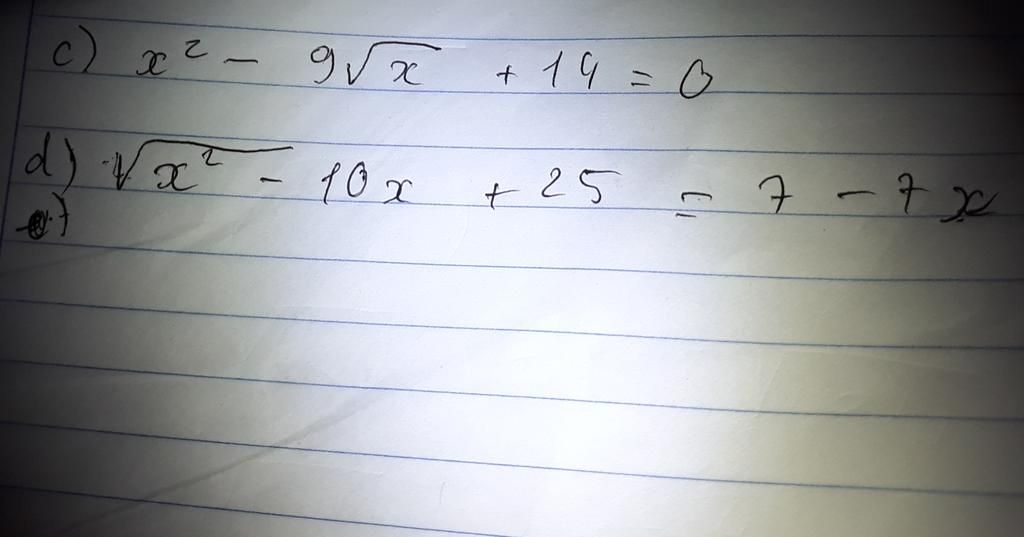 c) x² - 9√x + 19 = 0
d) √x² - 10x + 25 = 7 - 7x